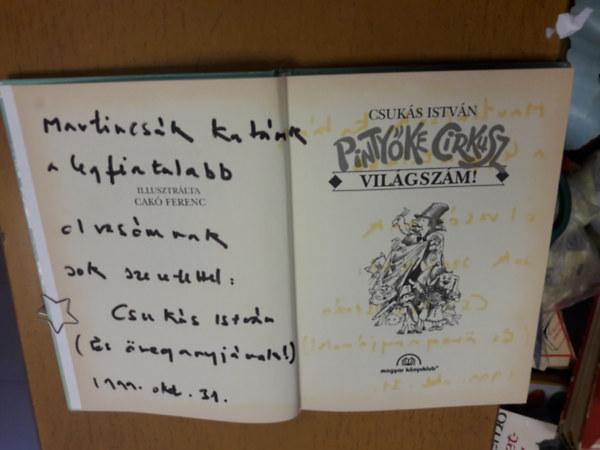 Martincsák Katának
a legfiatalabb
ILLUSZTRÁLTA
CAKÓ FERENC
olvasómnak
sok szeretettel:
Csukás István
(És öreganyjának!)
1999. okt. 31.
CSUKÁS ISTVÁN
PINTYŐKE CIRKUSZ
VILÁGSZÁM!
magyar könyvklub